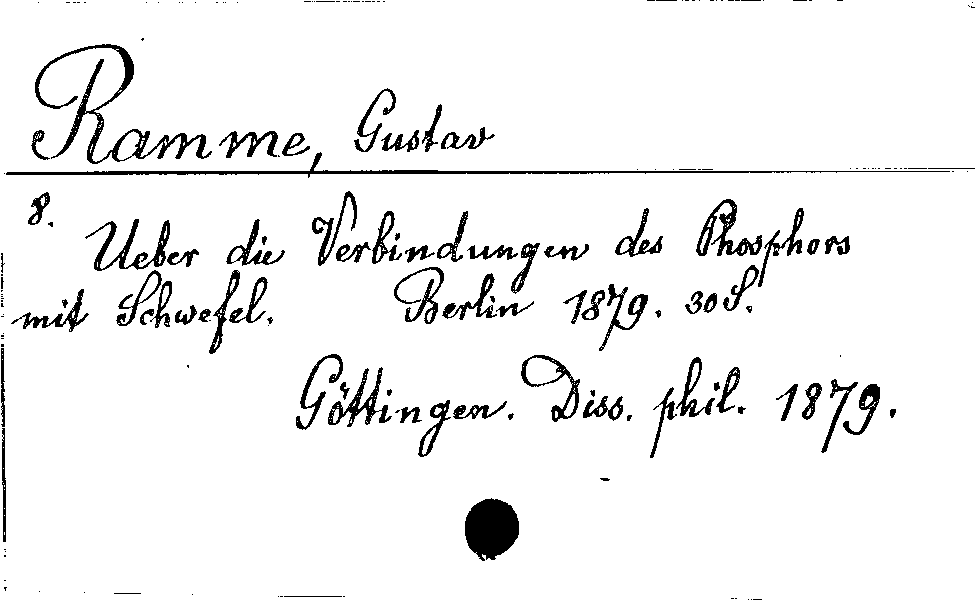 Ramme, Gustav
8.
Ueber die Verbindungen des Phosphors
mit Schwefel. Berlin 1879. 30 S.
Göttingen. Diss. phil. 1879.